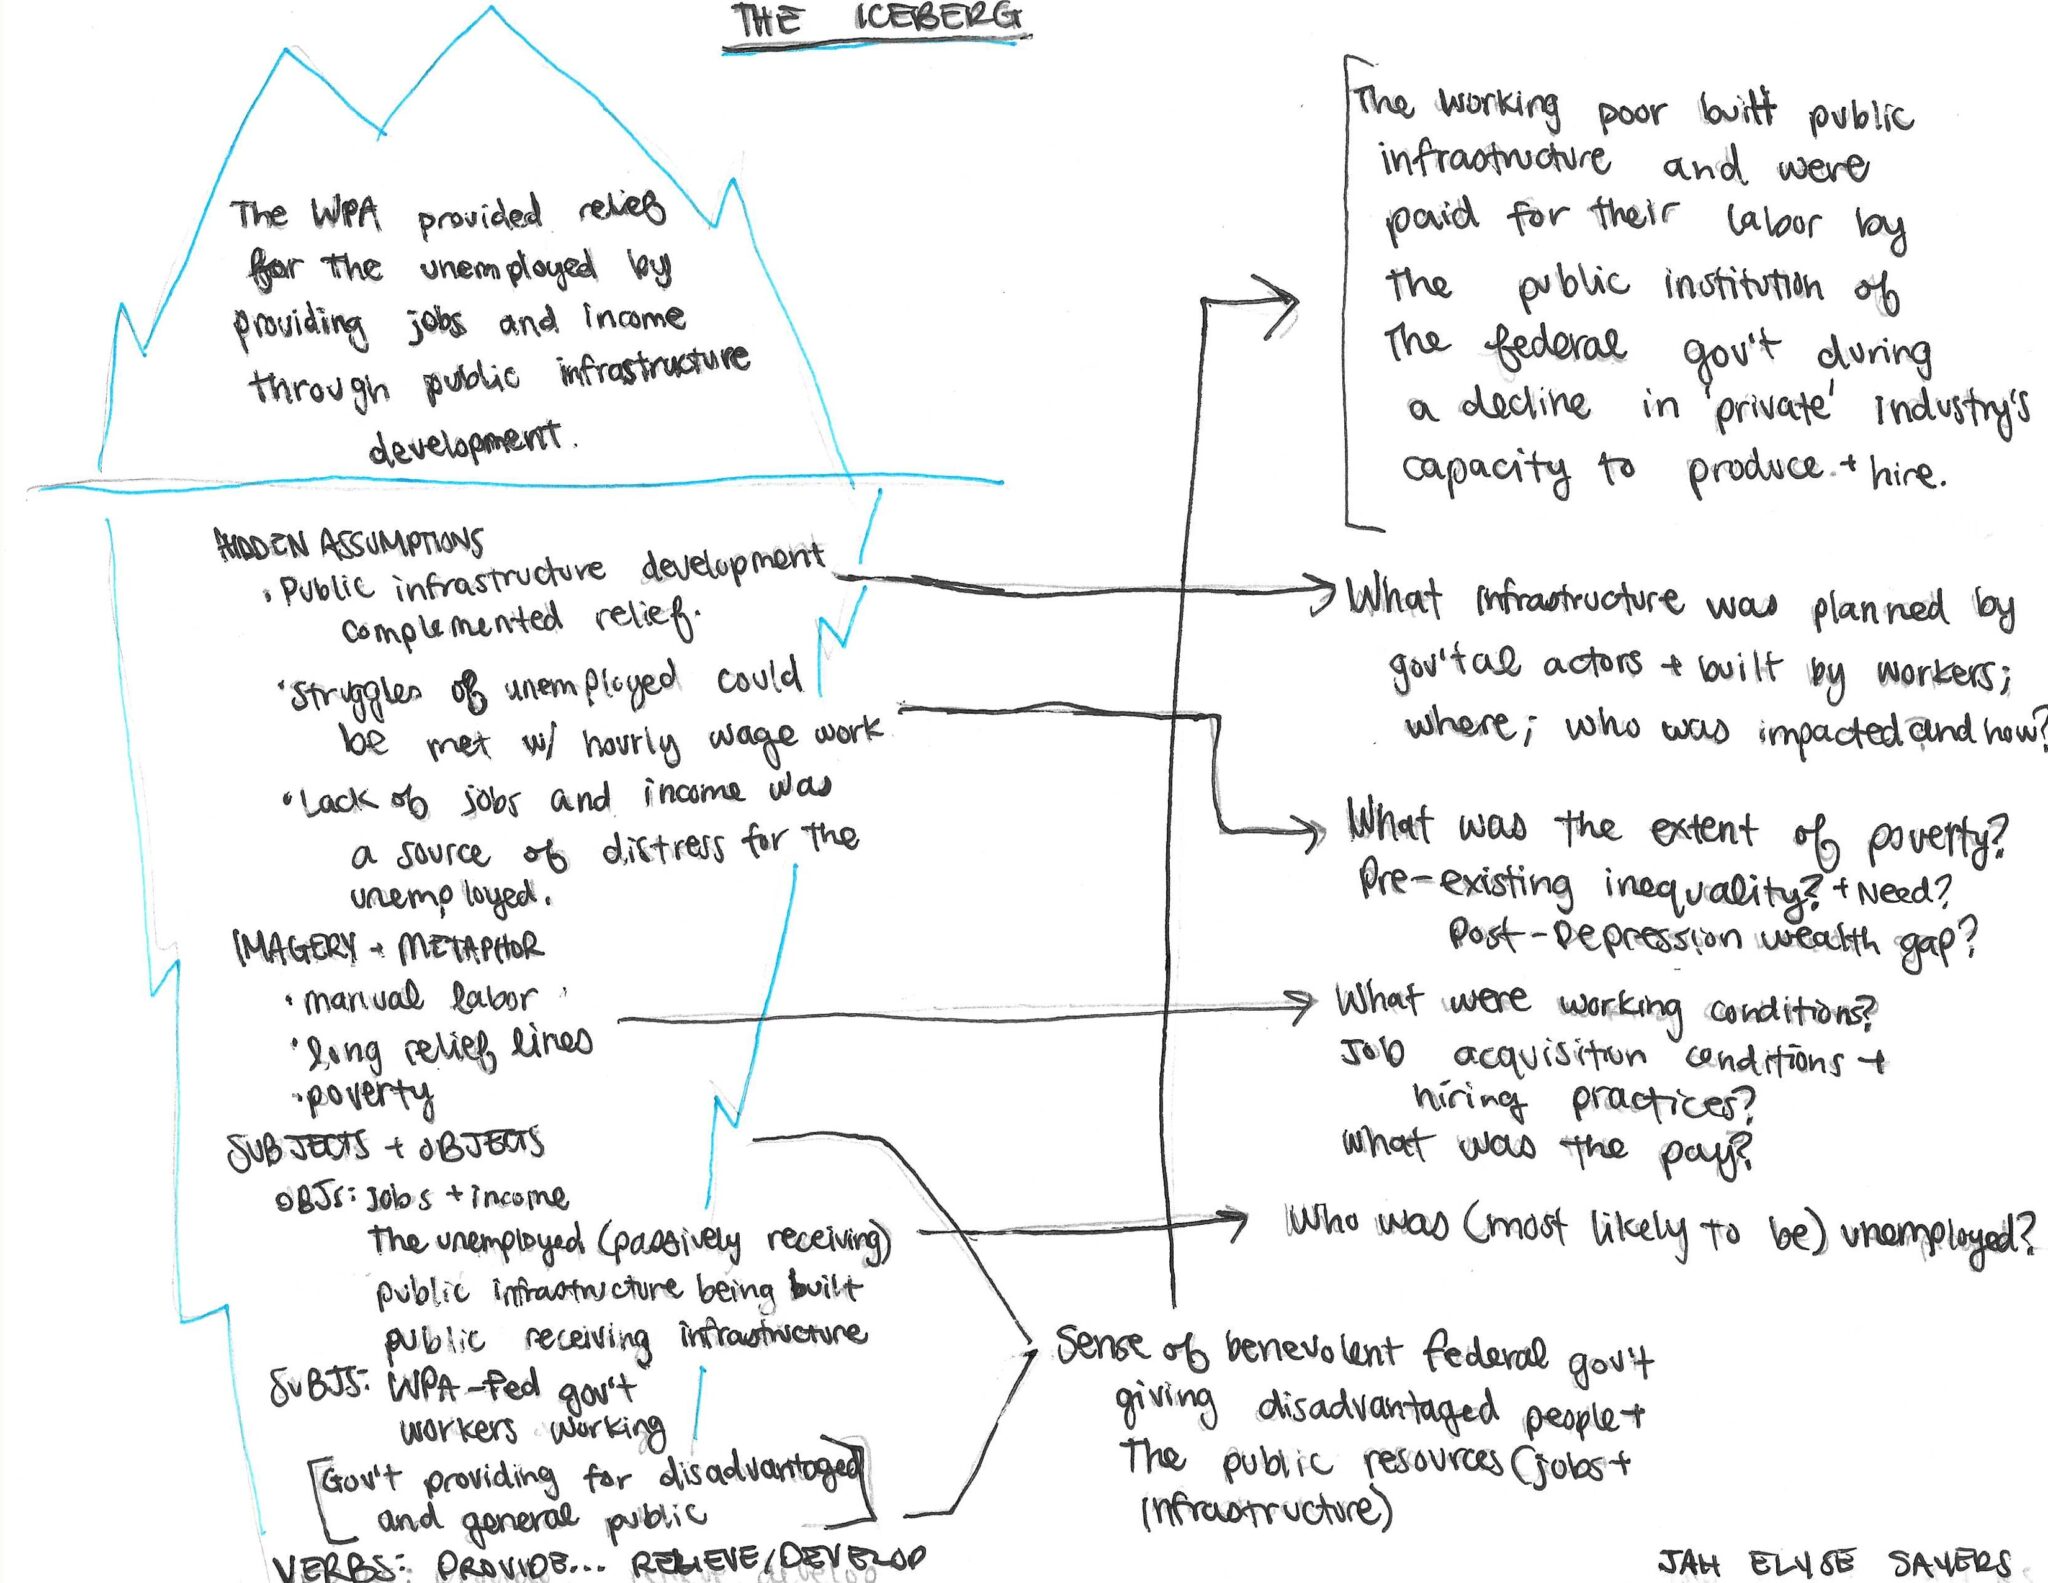 THE ICEBERG
The WPA provided relief
for the unemployed by
providing jobs and income
through public infrastructure
development.
HIDDEN ASSUMPTIONS
• Public infrastructure development
complemented relief.
• Struggles of unemployed could
be met w/ hourly wage work
• Lack of jobs and income was
a source of distress for the
unemployed.
IMAGERY + METAPHOR
• manual labor
• long relief lines
• poverty
SUBJECTS + OBJECTS
OBJS: jobs + income
the unemployed (passively receiving)
public infrastructure being built
public receiving infrastructure
SUBJS: WPA-fed gov't
workers working
[Gov't providing for disadvantaged
and general public]
VERBS: PROVIDE... RELIEVE/DEVELOP
The working poor built public
infrastructure and were
paid for their labor by
the public institution of
the federal gov't during
a decline in 'private' industry's
capacity to produce + hire.
What infrastructure was planned by
gov'tal actors + built by workers;
where; who was impacted and how?
What was the extent of poverty?
Pre-existing inequality? + Need?
Post-Depression wealth gap?
What were working conditions?
Job acquisition conditions +
hiring practices?
What was the pay?
Who was (most likely to be) unemployed?
Sense of benevolent federal gov't
giving disadvantaged people +
the public resources (jobs +
infrastructure)
JAH ELYSE SAYERS